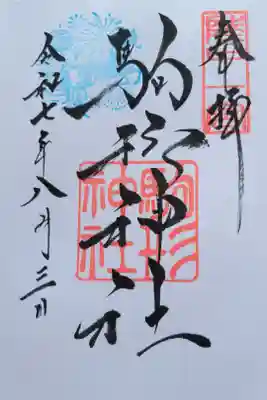 奉拝
駒形神社
駒形
神社
令和七年八月三日